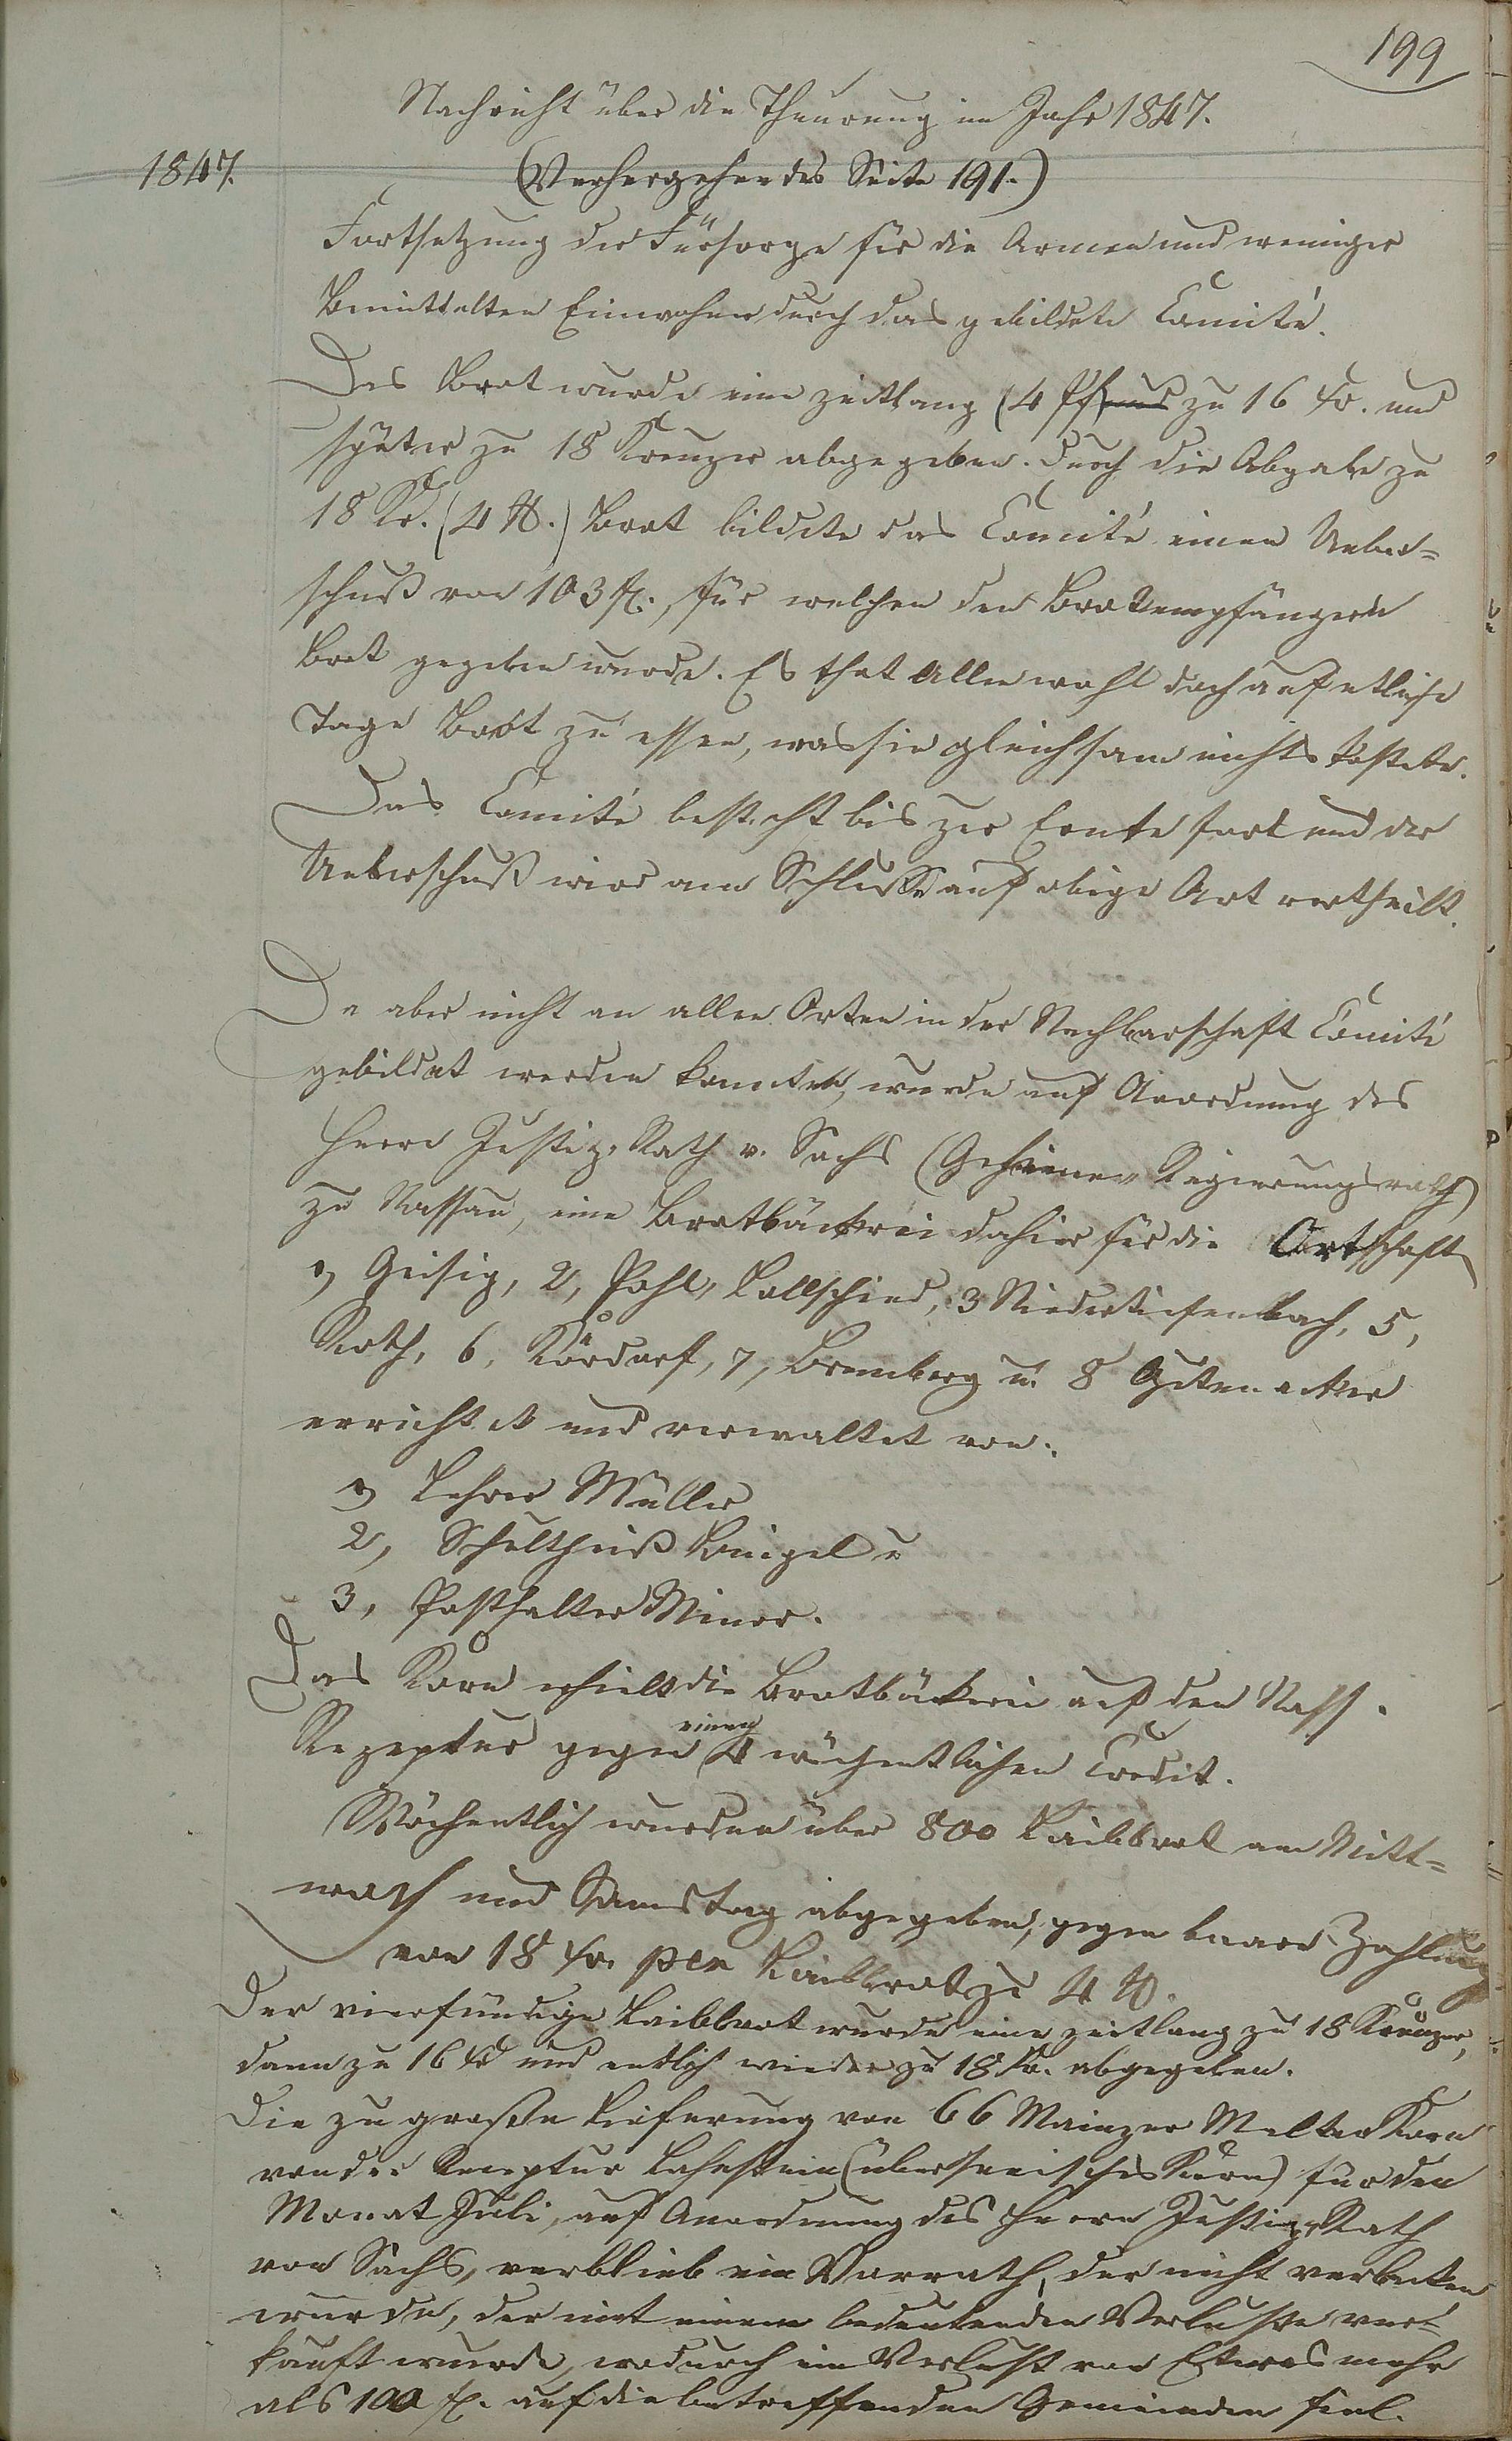 199
Nachricht über die Theurung im Jahr 1847.
1847. (Vorhergehendes Seite 191.)
Fortsetzung der Fürsorge für die Armen und weniger
Bemittelten Einwohner durch das gebildete Comité.
Das Brot wurde eine zeitlang (4 Pfund zu 16 Kr. und
später zu 18 Kreuzer abgegeben. Durch die Abgabe zu
18 Kr. (4 ℔.) Brot bildete das Comité einen Ueber=
schuß von 103 fl., für welchen den Brotempfängern
Brot gegeben wurde. Es that Allen wohl doch auf etliche
Tage Brot zu essen, was sie gleichsam nichts kostete.
Das Comité besteht bis zur Ernte fort und der
Ueberschuß wird am Schlusse auf obige Art vertheilt.
Da aber nicht an allen Orten in der Nachbarschaft Comité
gebildet werden konnten, wurde auf Anordnung des
Herrn Justiz-Rath v. Sachs (Geheimer Regierungsrath)
zu Nassau, eine Brotbäckerei dahier für die Ortschaften
1, Geisig, 2, Pohl, Lollschied, 3 Niedertiefenbach, 5,
Roth, 6, Kördorf, 7, Bremberg u. 8 Gutenacker
errichtet und verwaltet von:
1, Lehrer Müller
2, Schultheiß Bingel u
3, Posthalter Minor.
Das Korn erhielt die Brotbäckerei auf den Nass.
Rezeptur gegen einen 4 wöchentlichen Credit.
Wöchentlich wurden über 800 Laibbrot am Mitt=
woch und Samstag abgegeben, gegen baare Zahlung
von 18 Kr. per Laibbrot zu 4 ℔.
Der vierfündige Laibbrot wurde eine zeitlang zu 18 Kreuzer,
dann zu 16 Kr und endlich wieder zu 18 Kr. abgegeben.
Die zu große Lieferung von 66 Mainzer Malter Korn
von der Receptur Lahnstein (überseeisches Korn) für den
Monat Juli, auf Anordnung des Herrn Justiz-Rath
von Sachs, verblieb ein Vorrath, der nicht verbacken
wurde, der mit einem bedeutenden Verluste ver=
kauft wurde, wodurch ein Verlust von Etwas mehr
als 100 fl. auf die betreffenden Gemeinden fiel.